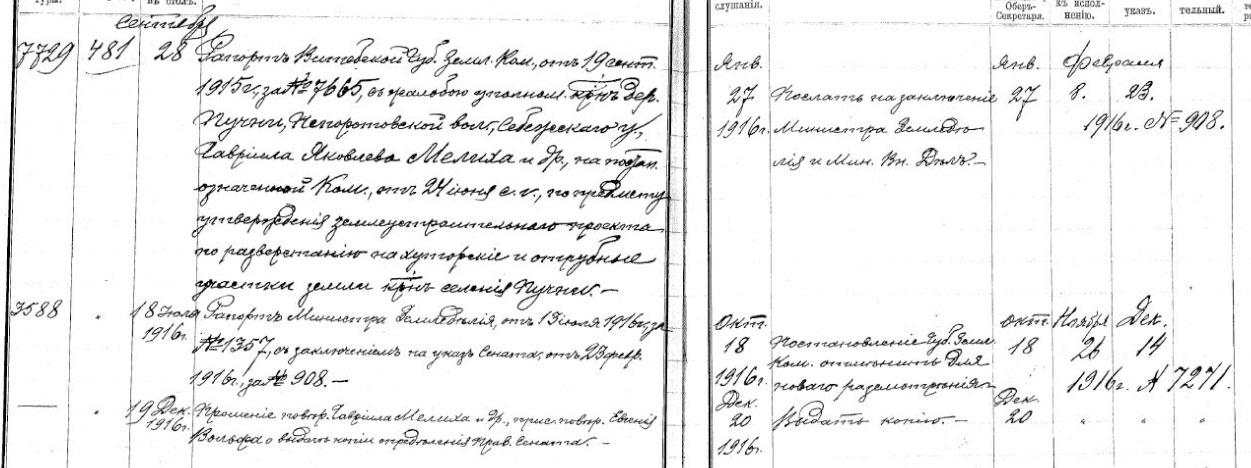 слушанія.
Оберъ-
Секретаря.
къ испол-
ненію.
указъ.
тельный.
въ столъ.
сентября
7729 481 28 Рапортъ Витебской Губ. Землл. Ком., отъ 19 сент.
1915 г., за № 7665, съ жалобою уполном. кр-нъ дер.
Пучни, Непоротовской вол., Себежскаго у.,
Гавріила Яковлева Мелиха и др., на постан.
означенной Ком., отъ 24 іюня с. г., по предмету
утвержденія землеустроительнаго проекта
по разверстанію на хуторскіе и отрубные
участки земли кр-нъ селенія Пучни. —
3588 " 18 Іюля Рапортъ Министра Земледѣлія, отъ 13 іюля 1916 г., за
1916 г. № 1357, съ заключеніемъ на указъ Сената, отъ 23 февр.
1916 г., за № 908. —
— " 19 Дек. Прошеніе повѣр. Гавріила Мелиха и др., прис. повѣр. Евгенія
1916 г. Вольфа о выдачѣ копіи опредѣленія Прав. Сената. —
Янв. Янв. Февраля
27 Послать на заключеніе 27 8. 23.
1916 г. Министра Земледѣ 1916 г. № 908.
лія и Мин. Вн. Дѣлъ. —
Окт. Окт. Ноября Дек.
18 Постановленіе Губ. Землл. 18 26 14
Ком. отмѣнить для
1916 г. новаго разсмотрѣнія 1916 г. № 7271.
Дек. Дек.
20 Выдать копію. — 20 " " "
1916 г.